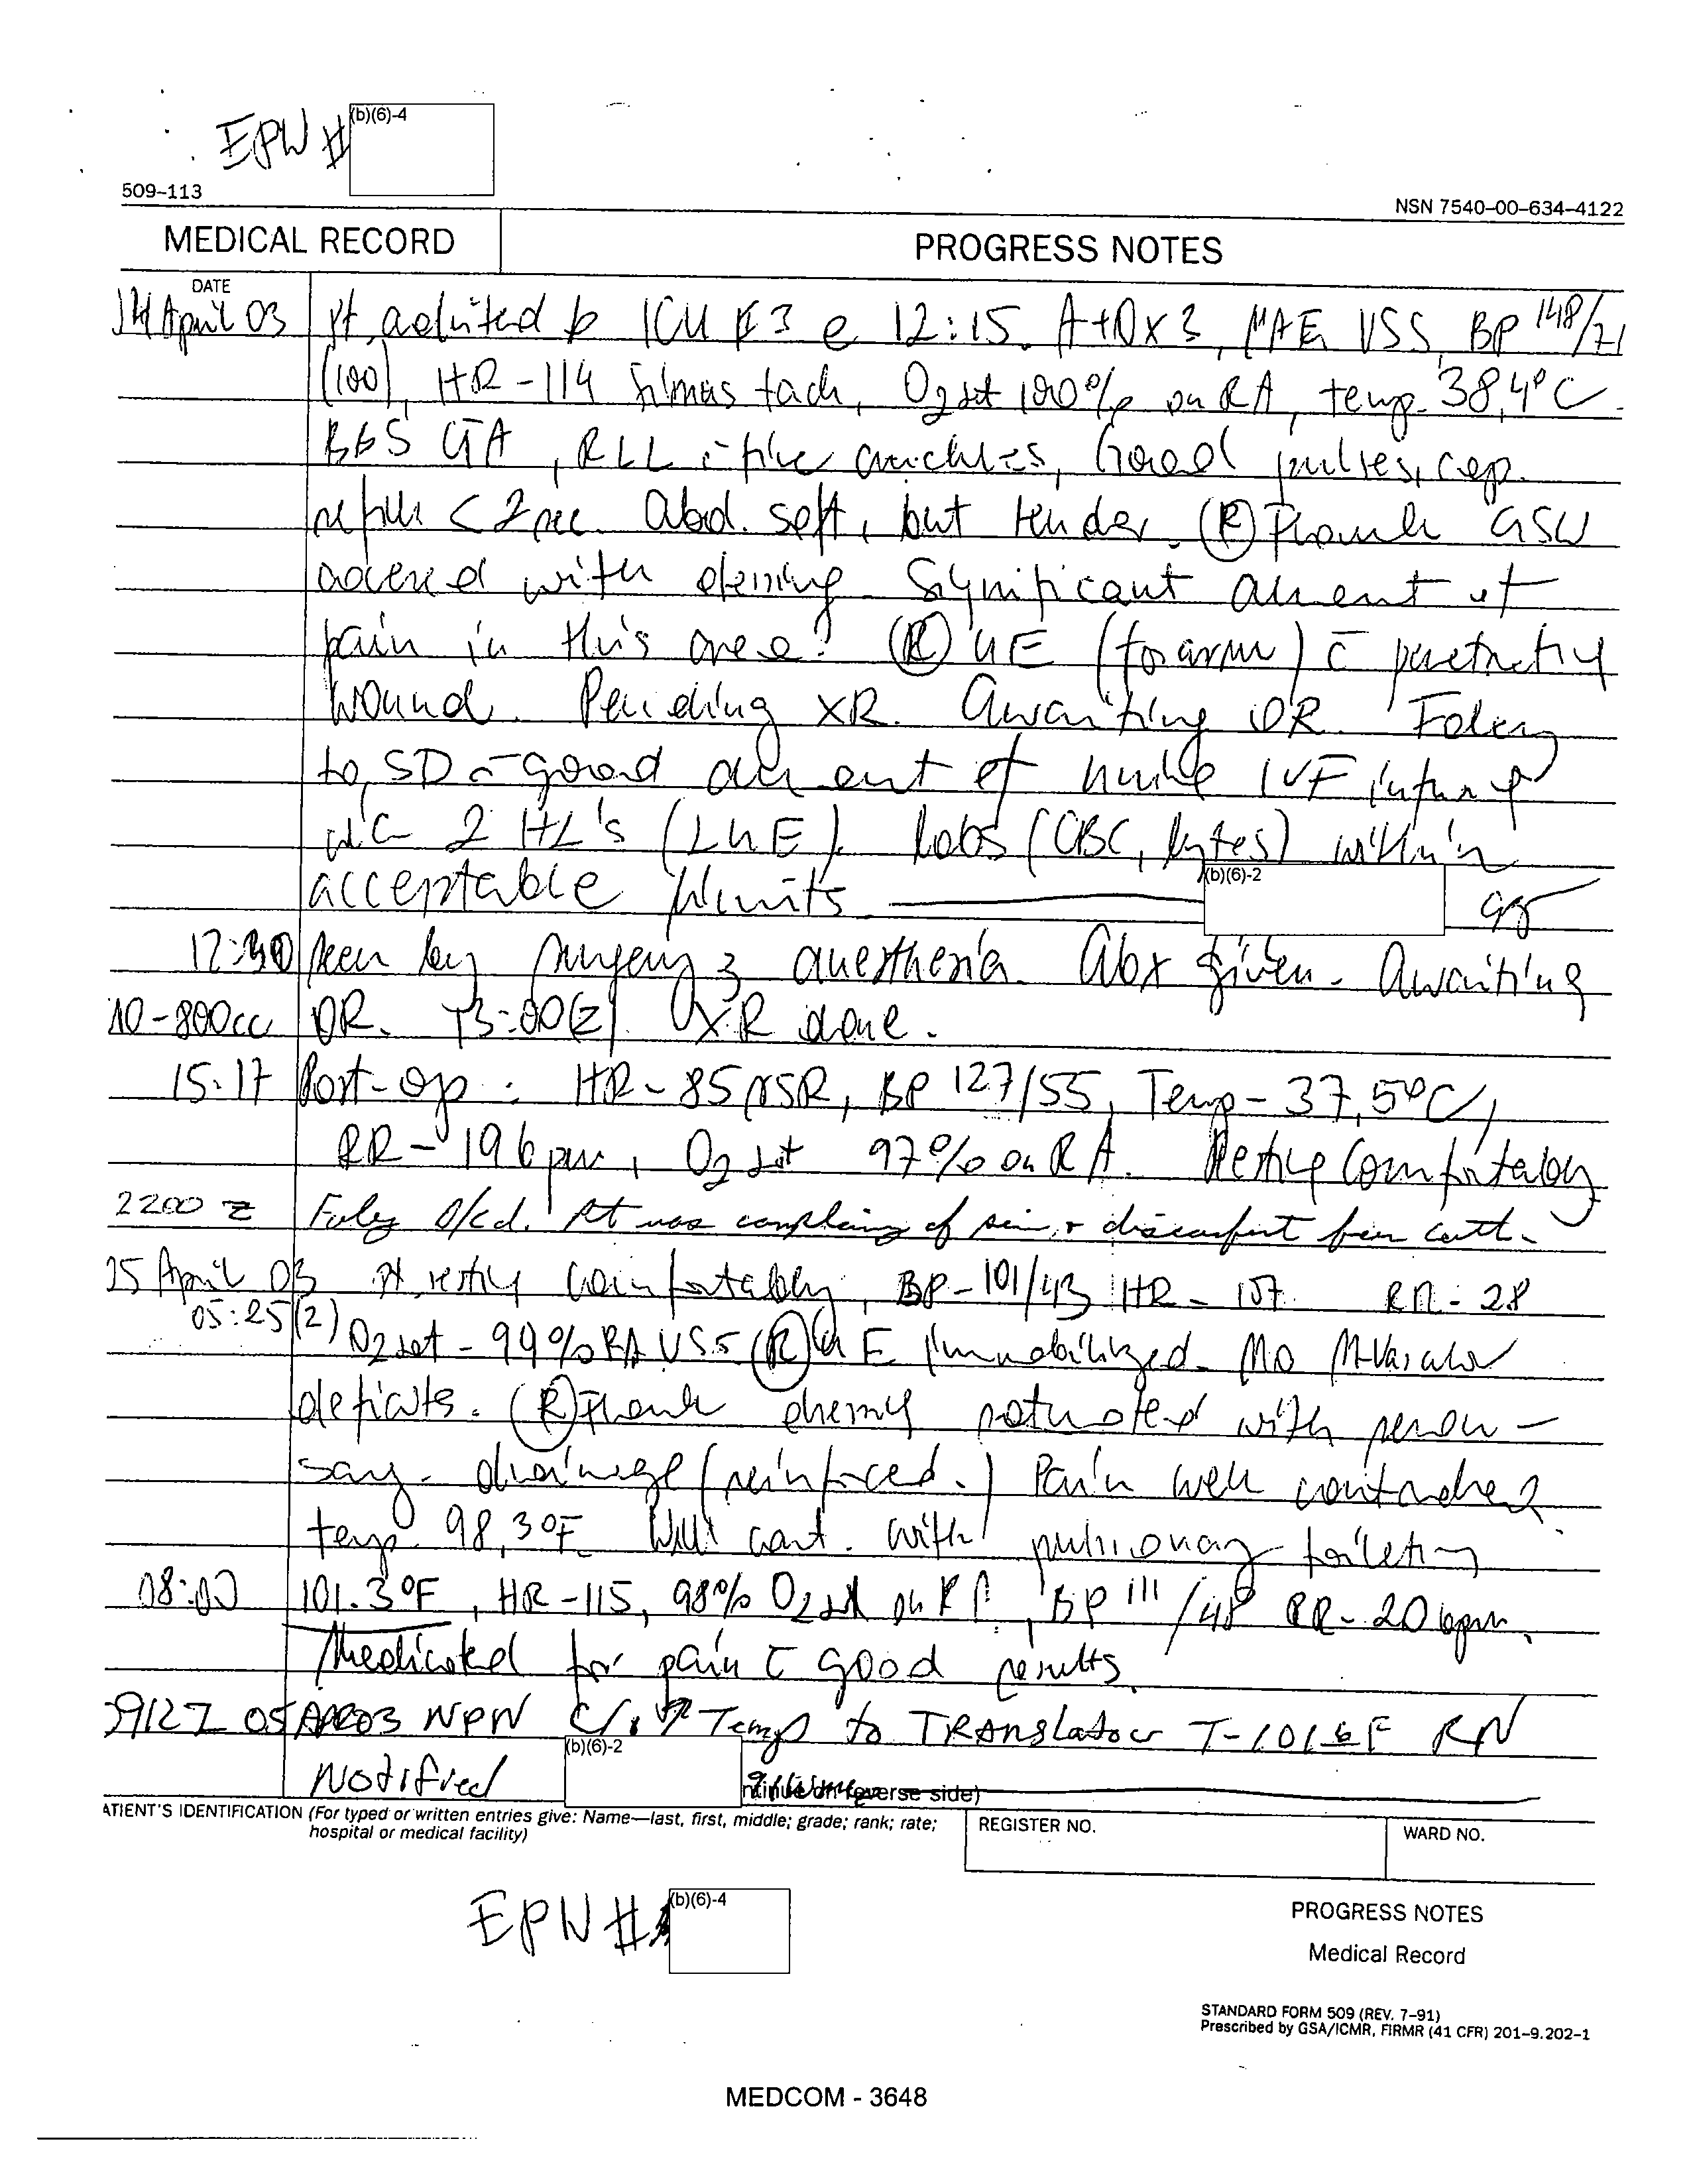 EPW # (b)(6)-4
509-113
NSN 7540-00-634-4122
MEDICAL RECORD
PROGRESS NOTES
DATE
April 03 pt. admited to ICU #3 @ 12:15. A+Ox3, MAE, VSS, BP 148/71
(100), HR-114 sinus tach, O2 sat 100% on RA, temp. 38,4°C.
BBS CTA, RLL c̄ fine crackles, Good pulses, cap.
refill < 2 sec. Abd. soft, but tender. (R) GSW
covered with dressing. Significant amount of
pain in this area. (R) UE (forarm) c̄ penetrating
wound. Pending XR. Awaiting OR. Foley
to SD c̄ good amount of urine IVF infusing
2 HL's (LUE). Labs (CBC, lytes) within
acceptable limits (b)(6)-2
12:30 seen by surgery & anesthesia. Abx given. Awaiting
-800cc OR. 13:00(Z) XR done.
15:17 Post-op: HR-85 NSR, BP 127/55, Temp-37,5°C,
RR-19 bpm, O2 sat 97% on RA. Resting comfortably
2200 Z Foley d/cd. Pt was complaining of pain & discomfort from cath.
April 03 pt resting comfortably, BP-101/43 HR-107 RR-28
05:25(Z) O2 sat-99% RA VSS (R) UE immobilized. No N-Vascular
deficits. (R) dressing saturated with
drainage (reinforced.) Pain well controlled
temp. 98,3°F. Will cont. with pulmonary toileting
08:00 101.3°F, HR-115, 98% O2 sat on RA, BP 111/48 RR-20 bpm.
Medicated for pain c̄ good results.
0912Z 05 APR03 NPN C/o ↑ Temp to TRANSlator T-101.6F RN
Notified (b)(6)-2
(Continue on reverse side)
PATIENT'S IDENTIFICATION (For typed or written entries give: Name—last, first, middle; grade; rank; rate;
hospital or medical facility)
REGISTER NO.
WARD NO.
EPW # (b)(6)-4
PROGRESS NOTES
Medical Record
STANDARD FORM 509 (REV. 7-91)
Prescribed by GSA/ICMR, FIRMR (41 CFR) 201-9.202-1
MEDCOM - 3648